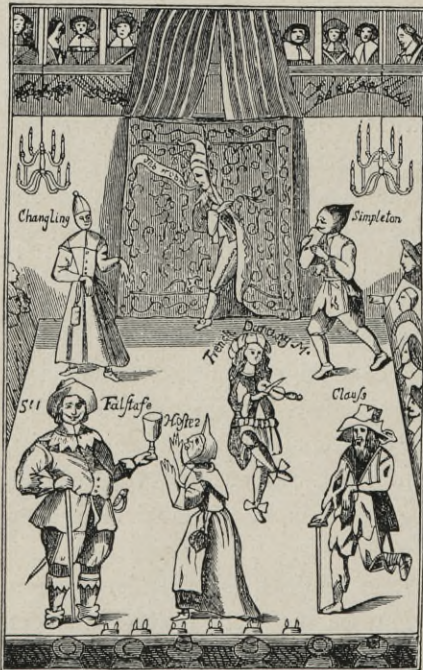 Changling
Simpleton
French Dancing Mr
Sr I
Falstafe
Hostes
Clause